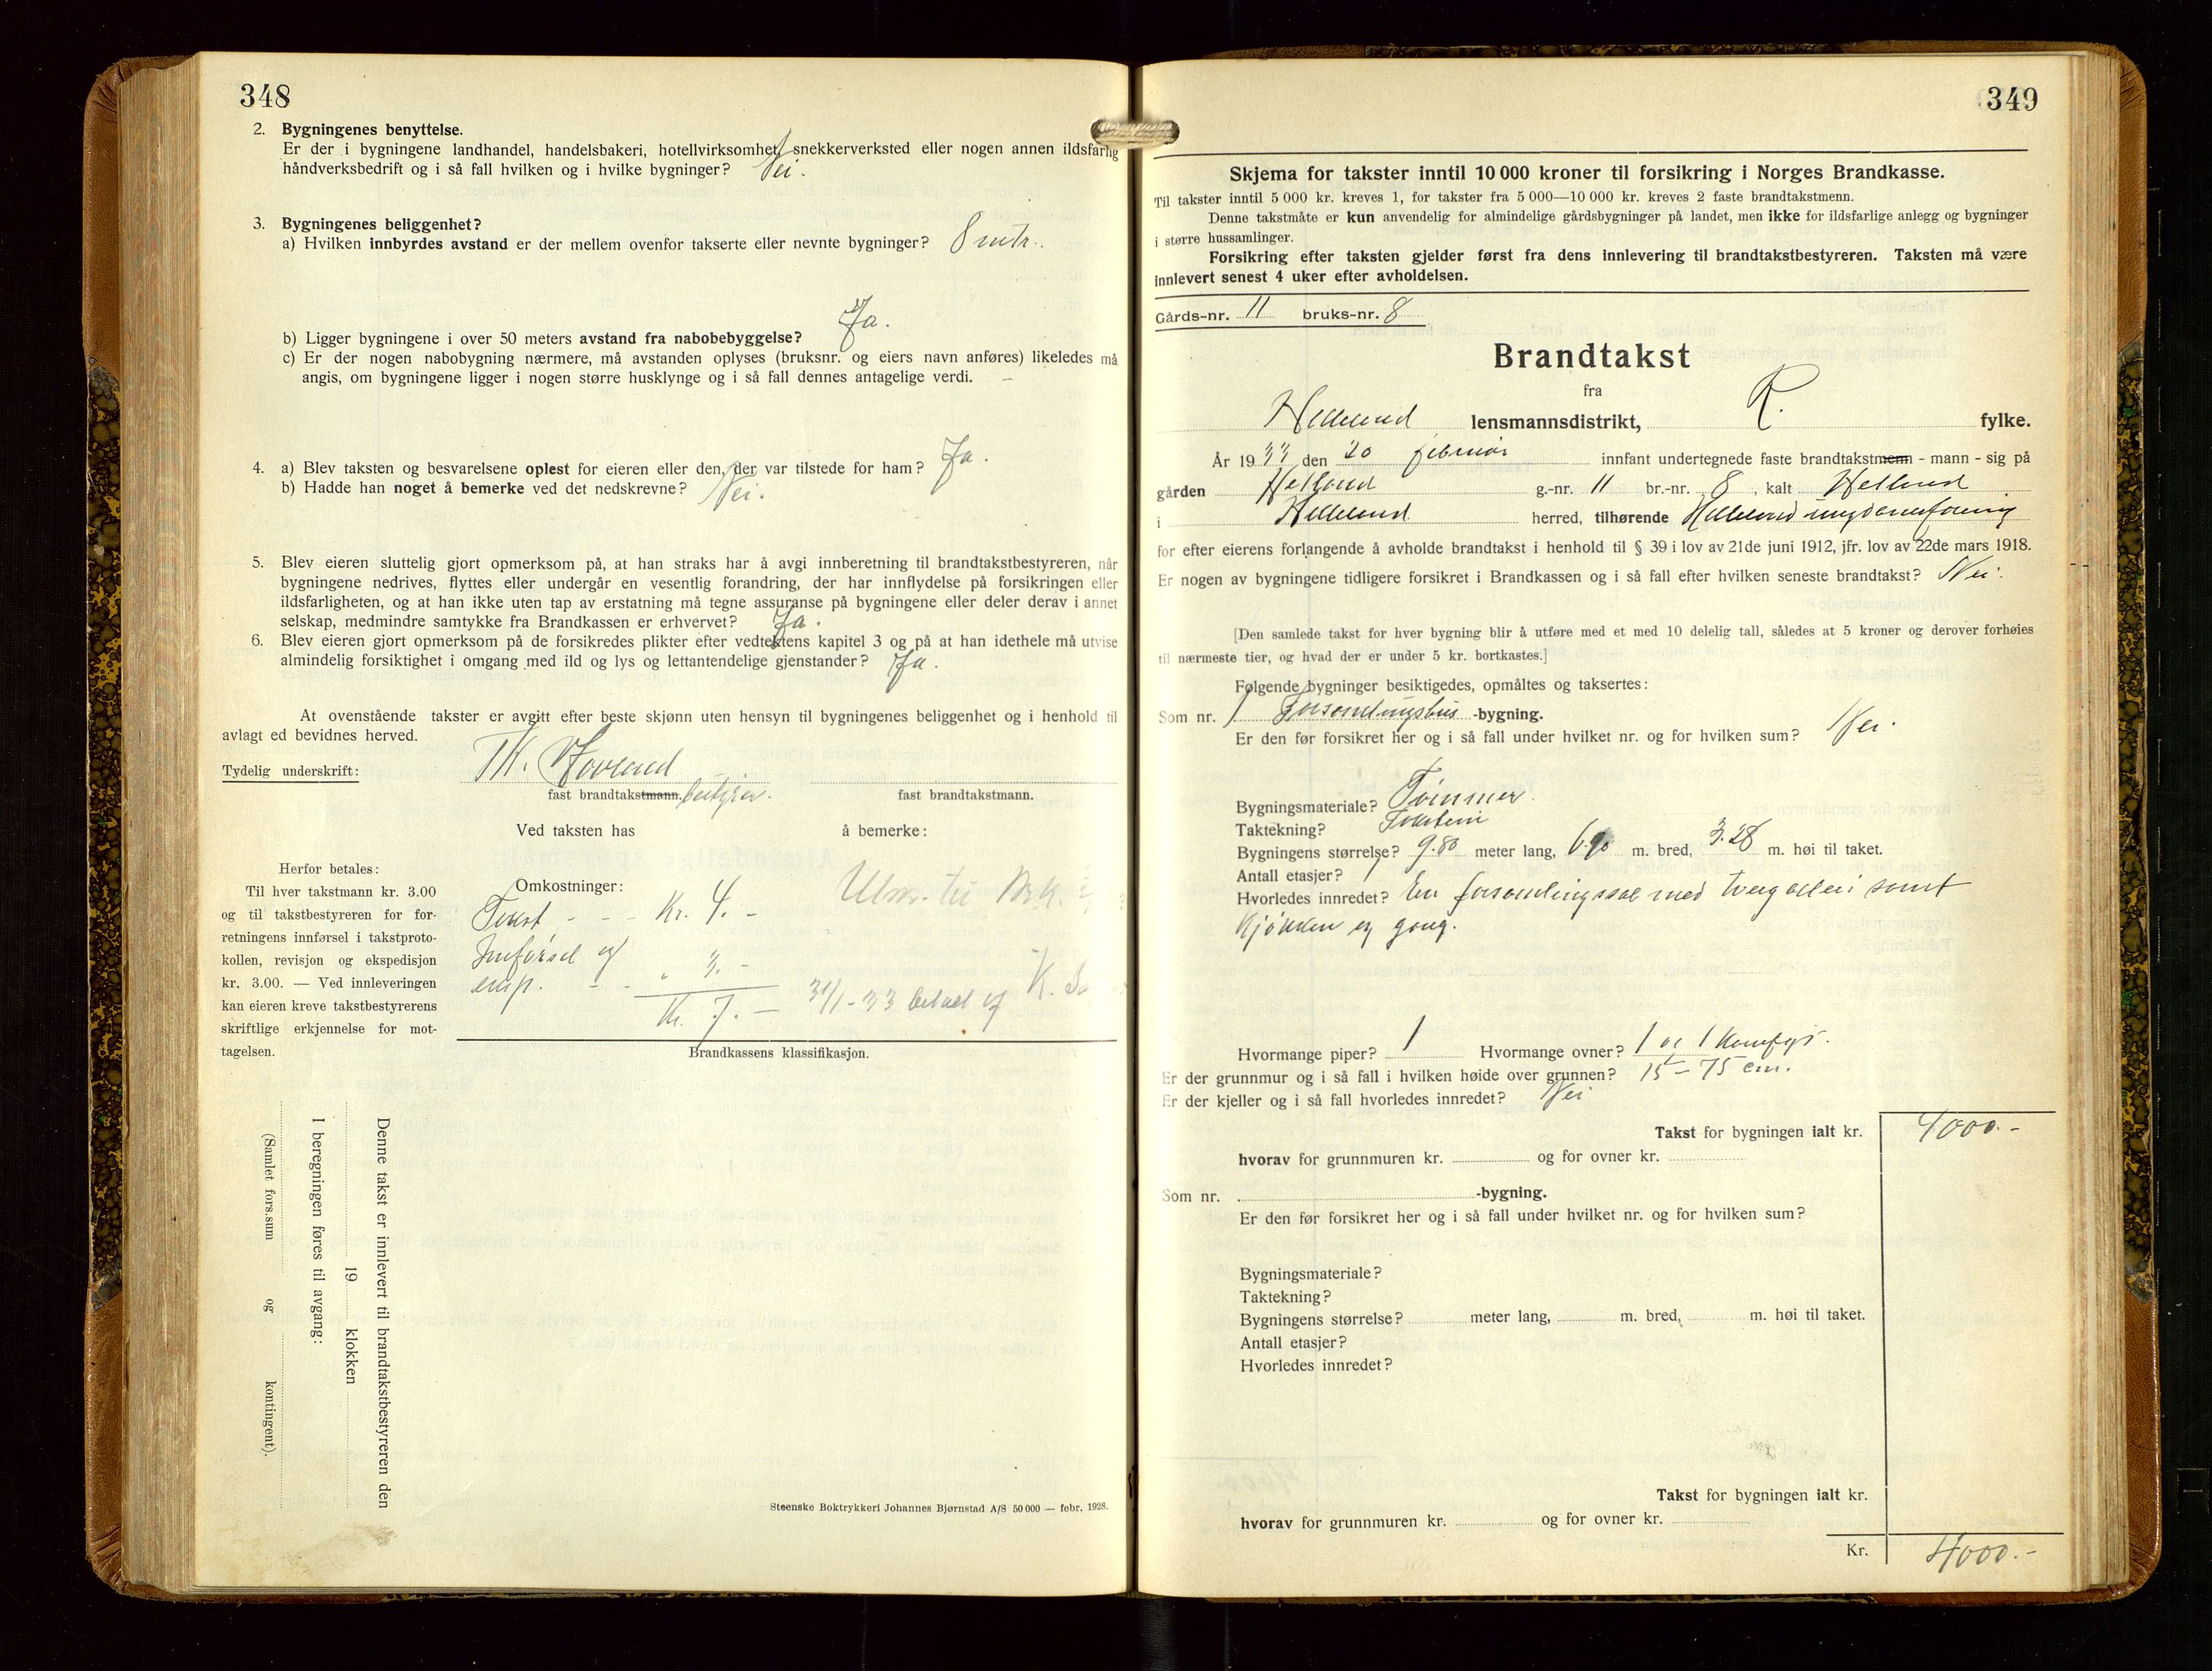 348
2. Bygningenes benyttelse.
Er der i bygningene landhandel, handelsbakeri, hotellvirksomhet, snekkerverksted eller nogen annen ildsfarlig
håndverksbedrift og i så fall hvilken og i hvilke bygninger? Nei.
3. Bygningenes beliggenhet?
a) Hvilken innbyrdes avstand er der mellem ovenfor takserte eller nevnte bygninger? 8 mtr.
b) Ligger bygningene i over 50 meters avstand fra nabobebyggelse? Ja.
c) Er der nogen nabobygning nærmere, må avstanden oplyses (bruksnr. og eiers navn anføres) likeledes må
angis, om bygningene ligger i nogen større husklynge og i så fall dennes antagelige verdi. –
4. a) Blev taksten og besvarelsene oplest for eieren eller den, der var tilstede for ham? Ja.
b) Hadde han noget å bemerke ved det nedskrevne? Nei.
5. Blev eieren sluttelig gjort opmerksom på, at han straks har å avgi innberetning til brandtakstbestyreren, når
bygningene nedrives, flyttes eller undergår en vesentlig forandring, der har innflydelse på forsikringen eller
ildsfarligheten, og at han ikke uten tap av erstatning må tegne assuranse på bygningene eller deler derav i annet
selskap, medmindre samtykke fra Brandkassen er erhvervet? Ja.
6. Blev eieren gjort opmerksom på de forsikredes plikter efter vedtektens kapitel 3 og på at han idethele må utvise
almindelig forsiktighet i omgang med ild og lys og lettantendelige gjenstander? Ja.
At ovenstående takster er avgitt efter beste skjønn uten hensyn til bygningenes beliggenhet og i henhold til
avlagt ed bevidnes herved.
Tydelig underskrift: Th. Hovland
fast brandtakstmann. bestyrer. fast brandtakstmann.
Ved taksten has å bemerke:
Herfor betales:
Til hver takstmann kr. 3.00
og til takstbestyreren for for-
retningens innførsel i takstproto-
kollen, revisjon og ekspedisjon
kr. 3.00. — Ved innleveringen
kan eieren kreve takstbestyrerens
skriftlige erkjennelse for mot-
tagelsen.
Omkostninger:
Takst - - - Kr. 4. -
Innførsel og
eksp. - - " 3. -
Kr. 7. -
Utskr. til Br.k.
31/1-33 betalt af K.
Brandkassens klassifikasjon.
Denne takst er innlevert til brandtakstbestyreren den
19 klokken
I beregningen føres til avgang:
(Samlet fors.sum og kontingent).
Steenske Boktrykkeri Johannes Bjørnstad A/S 50 000 — febr. 1928.
349
Skjema for takster inntil 10 000 kroner til forsikring i Norges Brandkasse.
Til takster inntil 5 000 kr. kreves 1, for takster fra 5 000—10 000 kr. kreves 2 faste brandtakstmenn.
Denne takstmåte er kun anvendelig for almindelige gårdsbygninger på landet, men ikke for ildsfarlige anlegg og bygninger
i større hussamlinger.
Forsikring efter taksten gjelder først fra dens innlevering til brandtakstbestyreren. Taksten må være
innlevert senest 4 uker efter avholdelsen.
Gårds-nr. 11 bruks-nr. 8
Brandtakst
fra
Helleland lensmannsdistrikt, R. fylke.
År 1933 den 20 februar innfant undertegnede faste brandtakstmenn - mann - sig på
gården Helland g.-nr. 11 br.-nr. 8, kalt Helland
i Helleland herred, tilhørende Helleland ungdomsforening
for efter eierens forlangende å avholde brandtakst i henhold til § 39 i lov av 21de juni 1912, jfr. lov av 22de mars 1918.
Er nogen av bygningene tidligere forsikret i Brandkassen og i så fall efter hvilken seneste brandtakst? Nei.
[Den samlede takst for hver bygning blir å utføre med et med 10 delelig tall, således at 5 kroner og derover forhøies
til nærmeste tier, og hvad der er under 5 kr. bortkastes.]
Følgende bygninger besiktigedes, opmåltes og taksertes:
Som nr. 1 Forsamlingshus -bygning.
Er den før forsikret her og i så fall under hvilket nr. og for hvilken sum? Nei.
Bygningsmateriale? Tømmer.
Taktekning? Takstein
Bygningens størrelse? 9.80 meter lang, 6.90 m. bred, 3.28 m. høi til taket.
Antall etasjer? 1
Hvorledes innredet? En forsamlingssal med tvergalleri samt
kjøkken og gang.
Hvormange piper? 1 Hvormange ovner? 1 og 1 komfyr.
Er der grunnmur og i så fall i hvilken høide over grunnen? 15 - 75 cm.
Er der kjeller og i så fall hvorledes innredet? Nei
Takst for bygningen ialt kr. 4000.-
hvorav for grunnmuren kr. og for ovner kr.
Som nr. -bygning.
Er den før forsikret her og i så fall under hvilket nr. og for hvilken sum?
Bygningsmateriale?
Taktekning?
Bygningens størrelse? meter lang, m. bred, m. høi til taket.
Antall etasjer?
Hvorledes innredet?
Takst for bygningen ialt kr.
hvorav for grunnmuren kr. og for ovner kr.
Kr. 4000.-